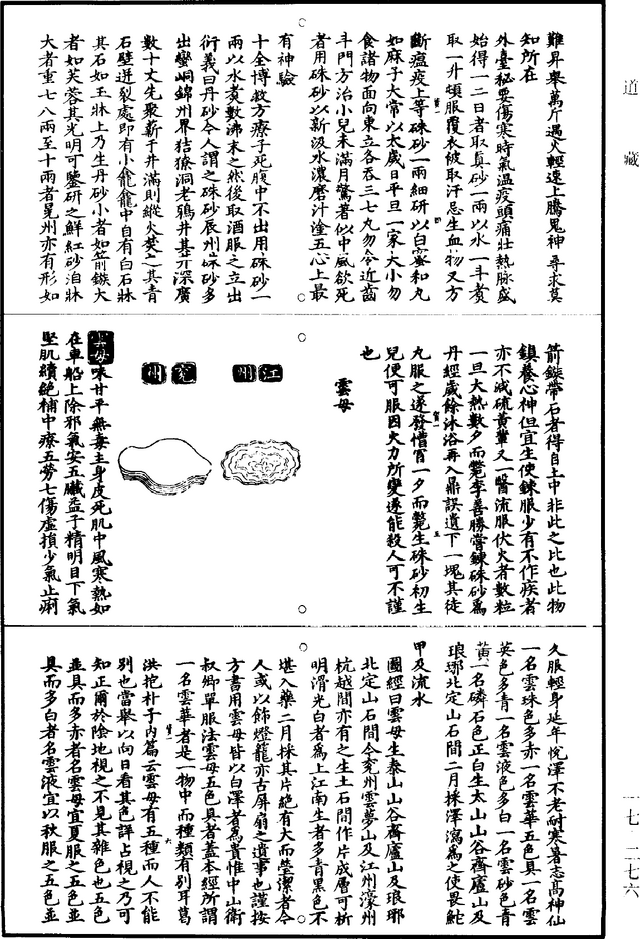 道藏
難昇舉萬斤遇火輕速上騰鬼神尋求莫
知所在
外臺祕要傷寒時氣溫疫頭痛壯熱脉盛
始得一二日者取真砂一兩以水一斗煮
取一升頓服覆衣被取汗忌生血物又方
斷瘟疫上等硃砂一兩細研以白蜜和丸
如麻子大常以太歲日平旦一家大小勿
食諸物面向東立各吞三七丸勿令近齒
斗門方治小兒未滿月驚著似中風欲死
者用硃砂以新汲水濃磨汁塗五心上最
有神驗
十全博救方療子死腹中不出用硃砂一
兩以水煮數沸末之然後取酒服之立出
衍義曰丹砂今人謂之硃砂辰州硃砂多
出蠻峒錦州界狤獠洞老鴉井其井深廣
數十丈先聚薪于井滿則縱火焚之其青
石壁迸裂處即有小龕龕中自有白石牀
其石如玉牀上乃生丹砂小者如箭鏃大
者如芙蓉其光明可鑒研之鮮紅砂洎牀
大者重七八兩至十兩者晃州亦有形如
箭鏃帶石者得自土中非此之比也此物
鎮養心神但宜生使鍊服少有不作疾者
亦不減硫黃輩又一醫流服伏火者數粒
一旦大熱數夕而斃李善勝嘗鍊硃砂為
丹經歲餘沐浴再入鼎誤遺下一塊其徒
丸服之遂發懵冒一夕而斃生硃砂初生
兒便可服因火力所變遂能殺人可不謹
也
雲母
江州
兗州
雲母味甘平無毒主身皮死肌中風寒熱如
在車船上除邪氣安五臟益子精明目下氣
堅肌續絕補中療五勞七傷虛損少氣止痢
久服輕身延年悅澤不老耐寒暑志高神仙
一名雲珠色多赤一名雲華五色具一名雲
英色多青一名雲液色多白一名雲砂色青
黃一名磷石色正白生太山山谷齊廬山及
琅琊北定山石間二月採澤瀉為之使畏鮀
甲及流水
圖經曰雲母生泰山山谷齊廬山及琅琊
北定山石間今兗州雲夢山及江州濠州
杭越間亦有之生土石間作片成層可析
明滑光白者為上江南生者多青黑色不
堪入藥二月採其片絕有大而瑩潔者今
人或以飾燈籠亦古屏扇之遺事也謹按
方書用雲母皆以白澤者為貴惟中山衛
叔卿單服法雲母五色具者蓋本經所謂
一名雲華者是一物中而種類有別耳葛
洪抱朴子內篇云雲母有五種而人不能
別也當舉以向日看其色詳占視之乃可
知正爾於陰地視之不見其雜色也五色
並具而多赤者名雲母宜夏服之五色並
具而多白者名雲液宜以秋服之五色並
一七 二七六